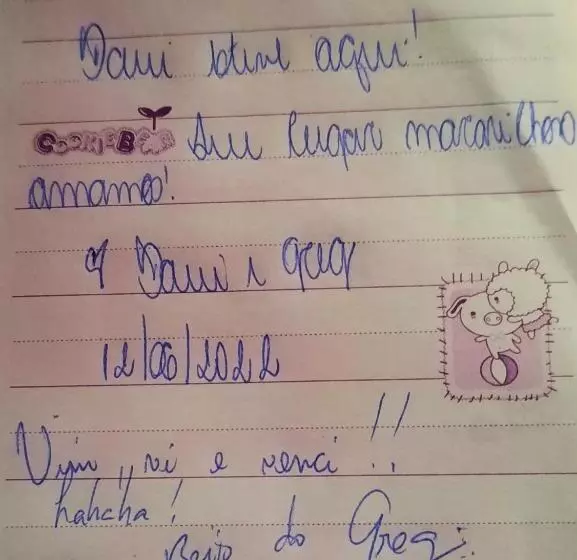 Davi esteve aqui!
COOKIEBEAR Seu lugar maravilhoso
amamos!
Davi e greg
12/06/2022
Vim, vi e venci!!
hahcha!
Beijo do Greg.